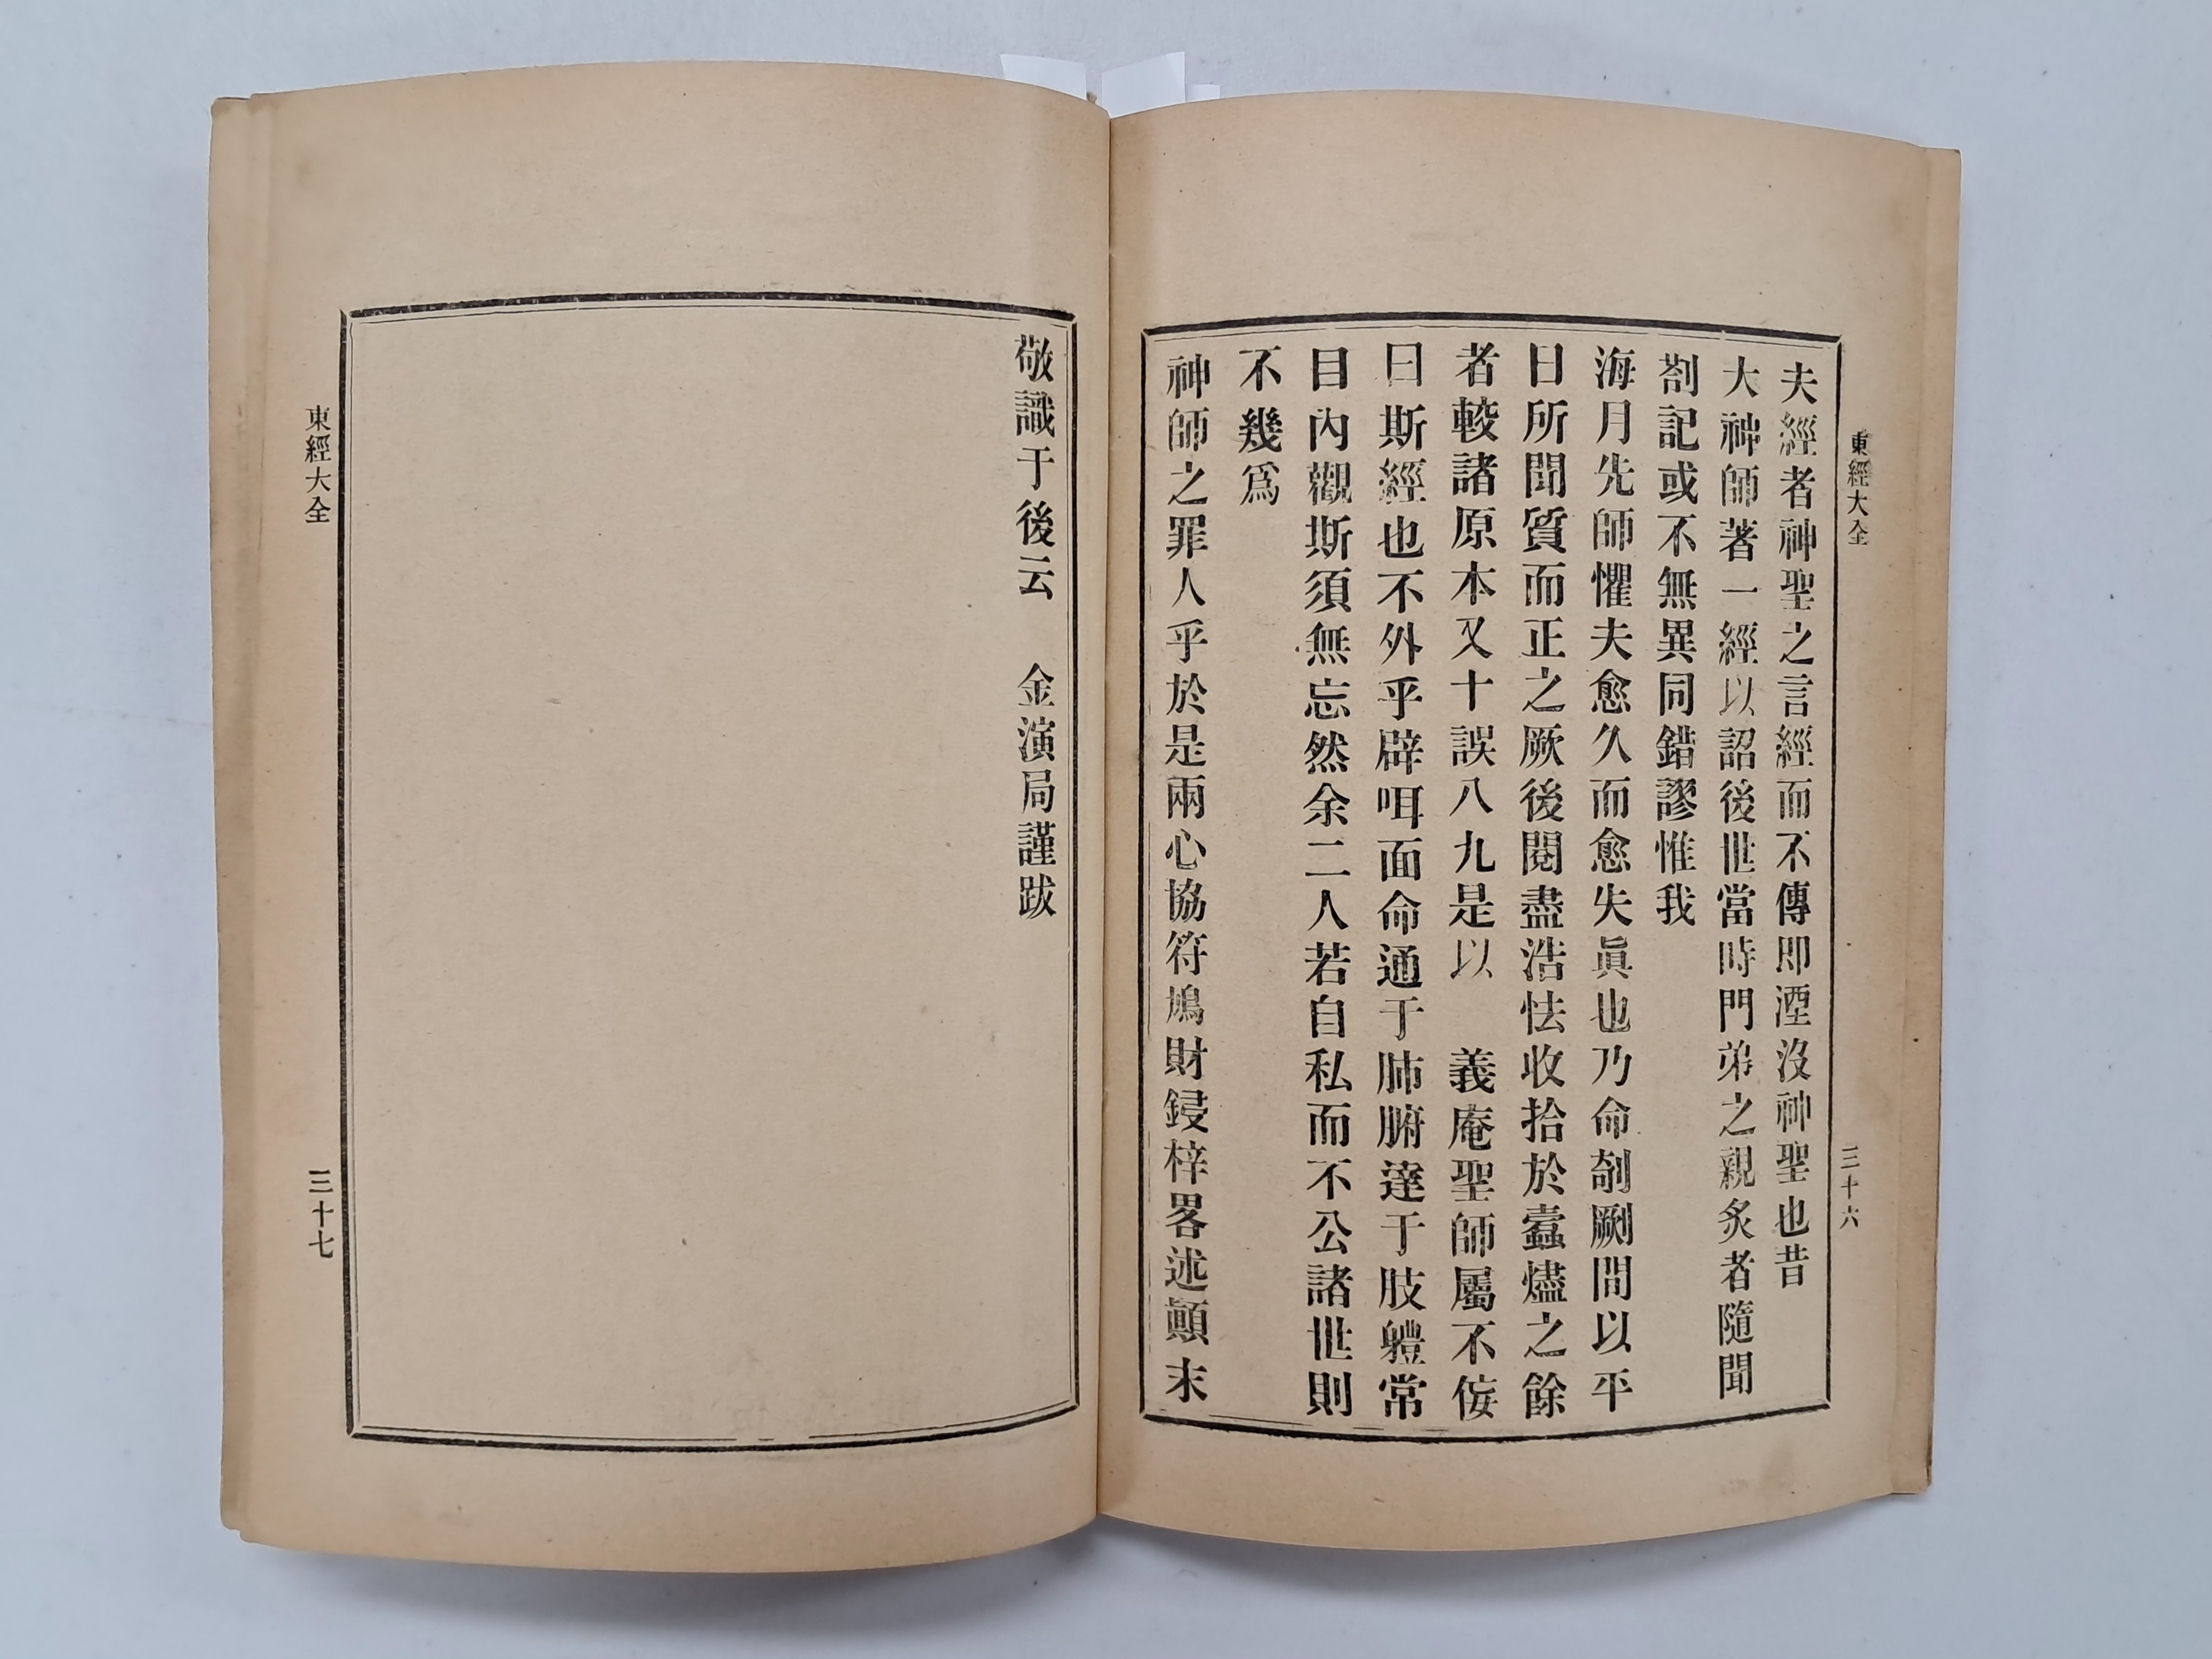 東經大全
三十六
夫經者神聖之言經而不傳即湮沒神聖也昔
大神師著一經以詔後世當時門弟之親炙者隨聞
剳記或不無異同錯謬惟我
海月先師懼夫愈久而愈失眞也乃命剞劂間以平
日所聞質而正之厥後閱盡浩怯收拾於蠹燼之餘
者較諸原本又十誤八九是以　義庵聖師屬不侫
曰斯經也不外乎辟咡面命通于肺腑達于肢軆常
目內觀斯須無忘然余二人若自私而不公諸世則
不幾爲
神師之罪人乎於是兩心協符鳩財鋟梓畧述顚末
敬識于後云　金演局謹跋
東經大全
三十七